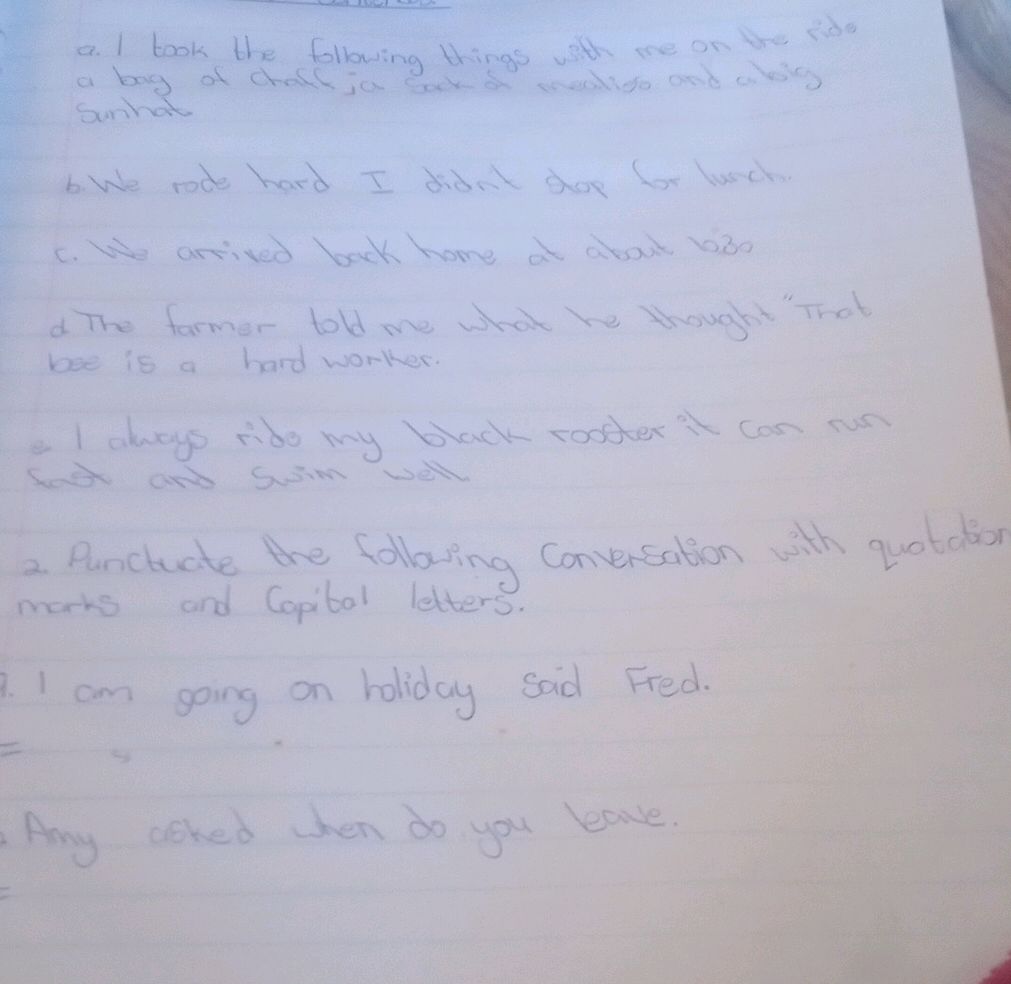 a. I took the following things with me on the ride
a bag of chaff ; a sack of mealies and a big
sunhat
b. We rode hard I didn't stop for lunch.
c. We arrived back home at about
d The farmer told me what he thought "That
bee is a hard worker.
e I always ride my black rooster it can run
fast and swim well
2. Punctuate the following conversation with quotation
marks and Capital letters.
I am going on holiday said Fred.
=
Amy asked when do you leave.
=